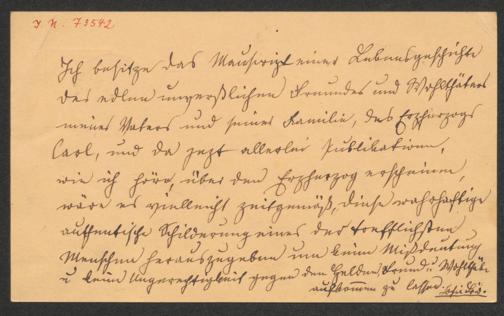 I. N. 73542
Ich besitze das Manuscript einer Lebensgeschichte
des edlen unvergeßlichen Freundes und Wohlthäters
meines Vaters und seiner Familie, des Erzherzogs
Carl, und da jezt allerlei Publikationen,
wie ich höre, über den Erzherzog erscheinen,
wäre es vielleicht zeitgemäß, diese wahrhaftige
authentische Schilderung eines der trefflichsten
Menschen herauszugeben um keine Mißdeutung
u keine Ungerechtigkeit gegen den Helden, Freund u Wohlthät.
aufkommen zu lassen.